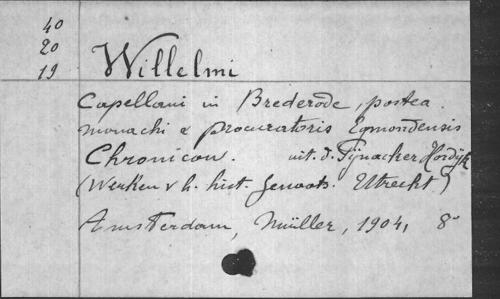 40
20
19
Willelmi
Capellani in Brederode, postea
monachi & procuratoris Egmondensis
Chronicon. uit. d. Pijnacker Hordijk
(Werken v. h. hist. Genoots. Utrecht)
Amsterdam, Müller, 1904, 8°